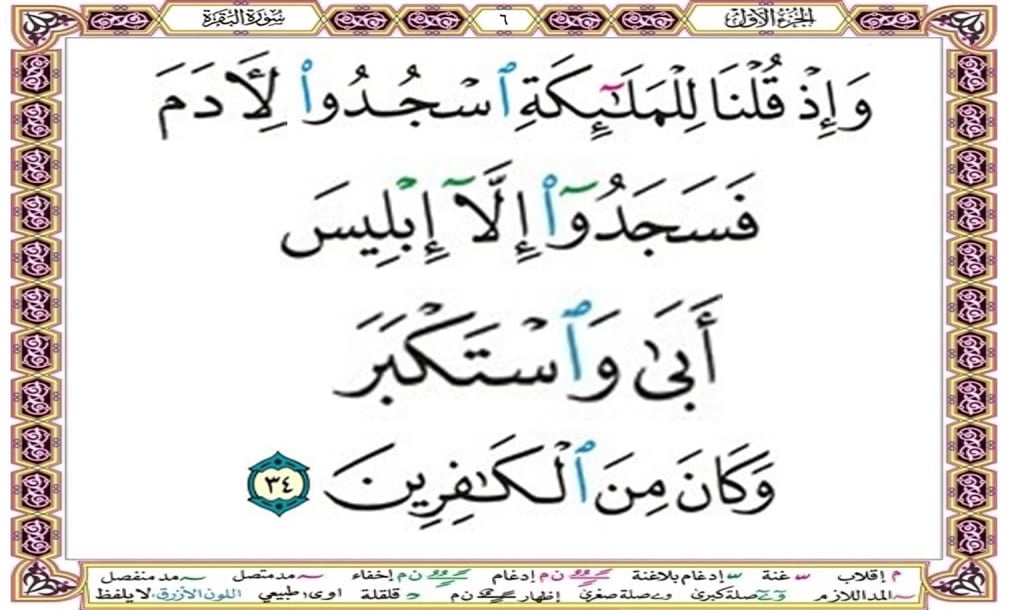 الجزء الأول ٦ سورة البقرة
وَإِذْ قُلْنَا لِلْمَلَٰٓئِكَةِ ٱسْجُدُوا۟ لِأَدَمَ
فَسَجَدُوٓا۟ إِلَّآ إِبْلِيسَ
أَبَىٰ وَٱسْتَكْبَرَ
وَكَانَ مِنَ ٱلْكَٰفِرِينَ ٣٤
م إقلاب غنة إدغام بلاغنة ن م إدغام ن م إخفاء مد متصل مد منفصل
المد اللازم صلة كبرى صلة صغرى إظهار ن م قلقلة اوى طبيعي اللون الأزرق لا يلفظ